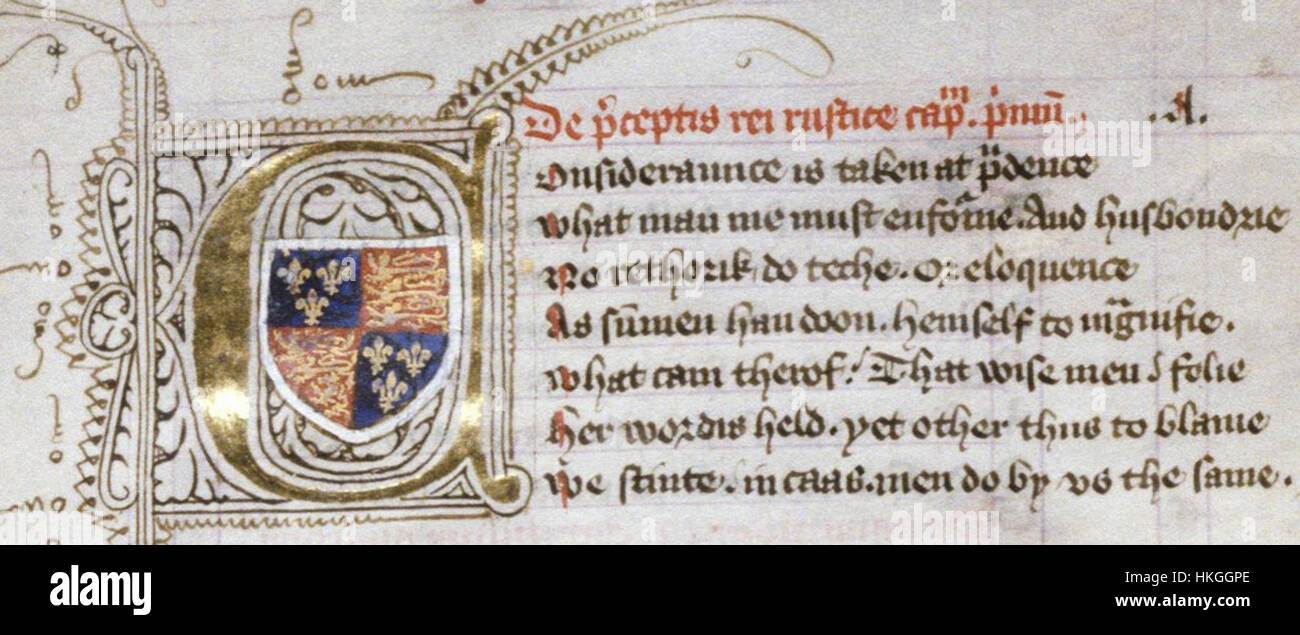 De p͛ceptis rei rustice cap̄ᵐ. p̓mū. .A.
Onsideraunce is taken at p͛dence
What man me must enforᵃme. And husbondrie
No rethorik do teche. Or eloquence
As sū̄men han doon. hemself to mᵃgnifie.
What cam therof. That wise men folie
Her wordis held. yet other thus to blame
We stinte. in caas. men do by vs the same.
a alamy stock photo
alamy
Image ID: HKGGPE
www.alamy.com